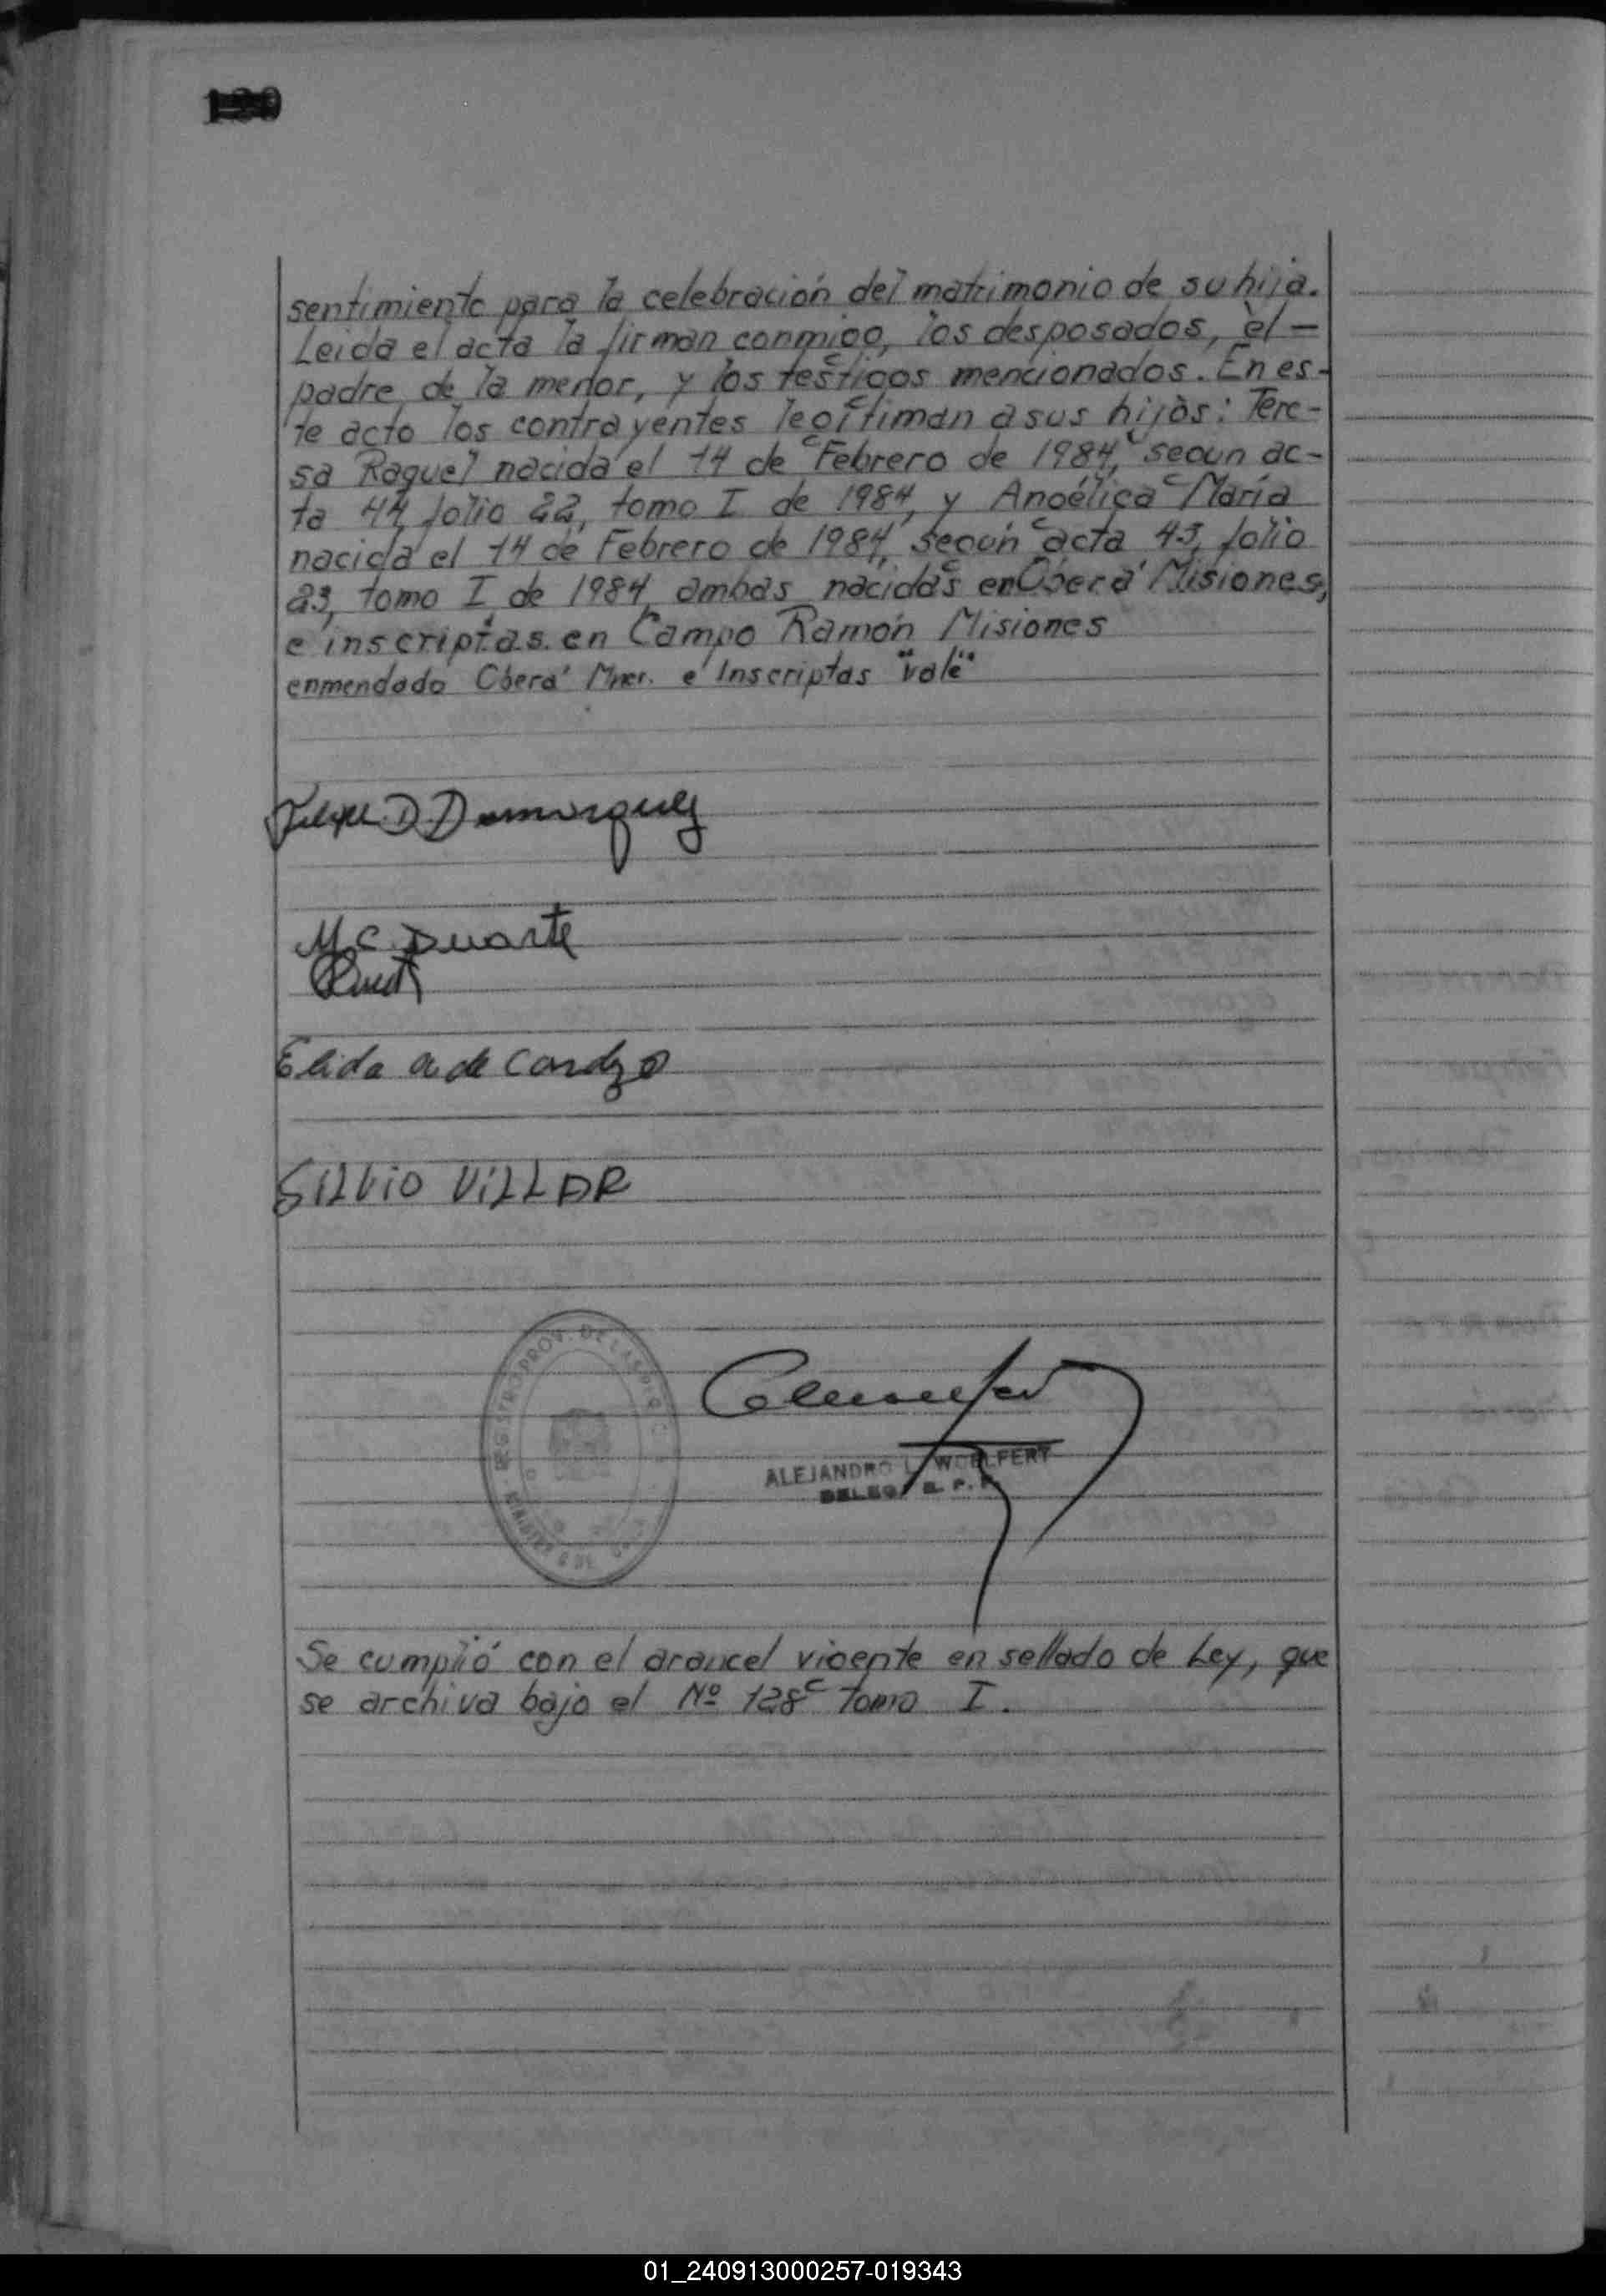 sentimiento para la celebración del matrimonio de su hija.
Leida el acta la firman conmigo, los desposados, èl —
padre de la menor, y los testigos mencionados. En es-
te acto los contrayentes legítiman a sus hijos: Tere-
sa Raquel nacida el 14 de Febrero de 1984, segun ac-
ta 44, folio 22, tomo I de 1984, y Angélica María
nacida el 14 de Febrero de 1984, según acta 45, folio
23, tomo I de 1984, ambas nacidas en Oberá Misiones,
e inscriptas en Campo Ramón Misiones
enmendado Oberá Mnes. e Inscriptas "vale"
D. Dominguez
M. C. Duarte
Elida a de Cardozo
SILVIO VILLAR
REGISTRO PROV. DE LAS
ALEJANDRO L. WOELFERT
Se cumplió con el arancel vigente en sellado de Ley, que
se archiva bajo el Nº 128 Tomo I.
01_240913000257-019343